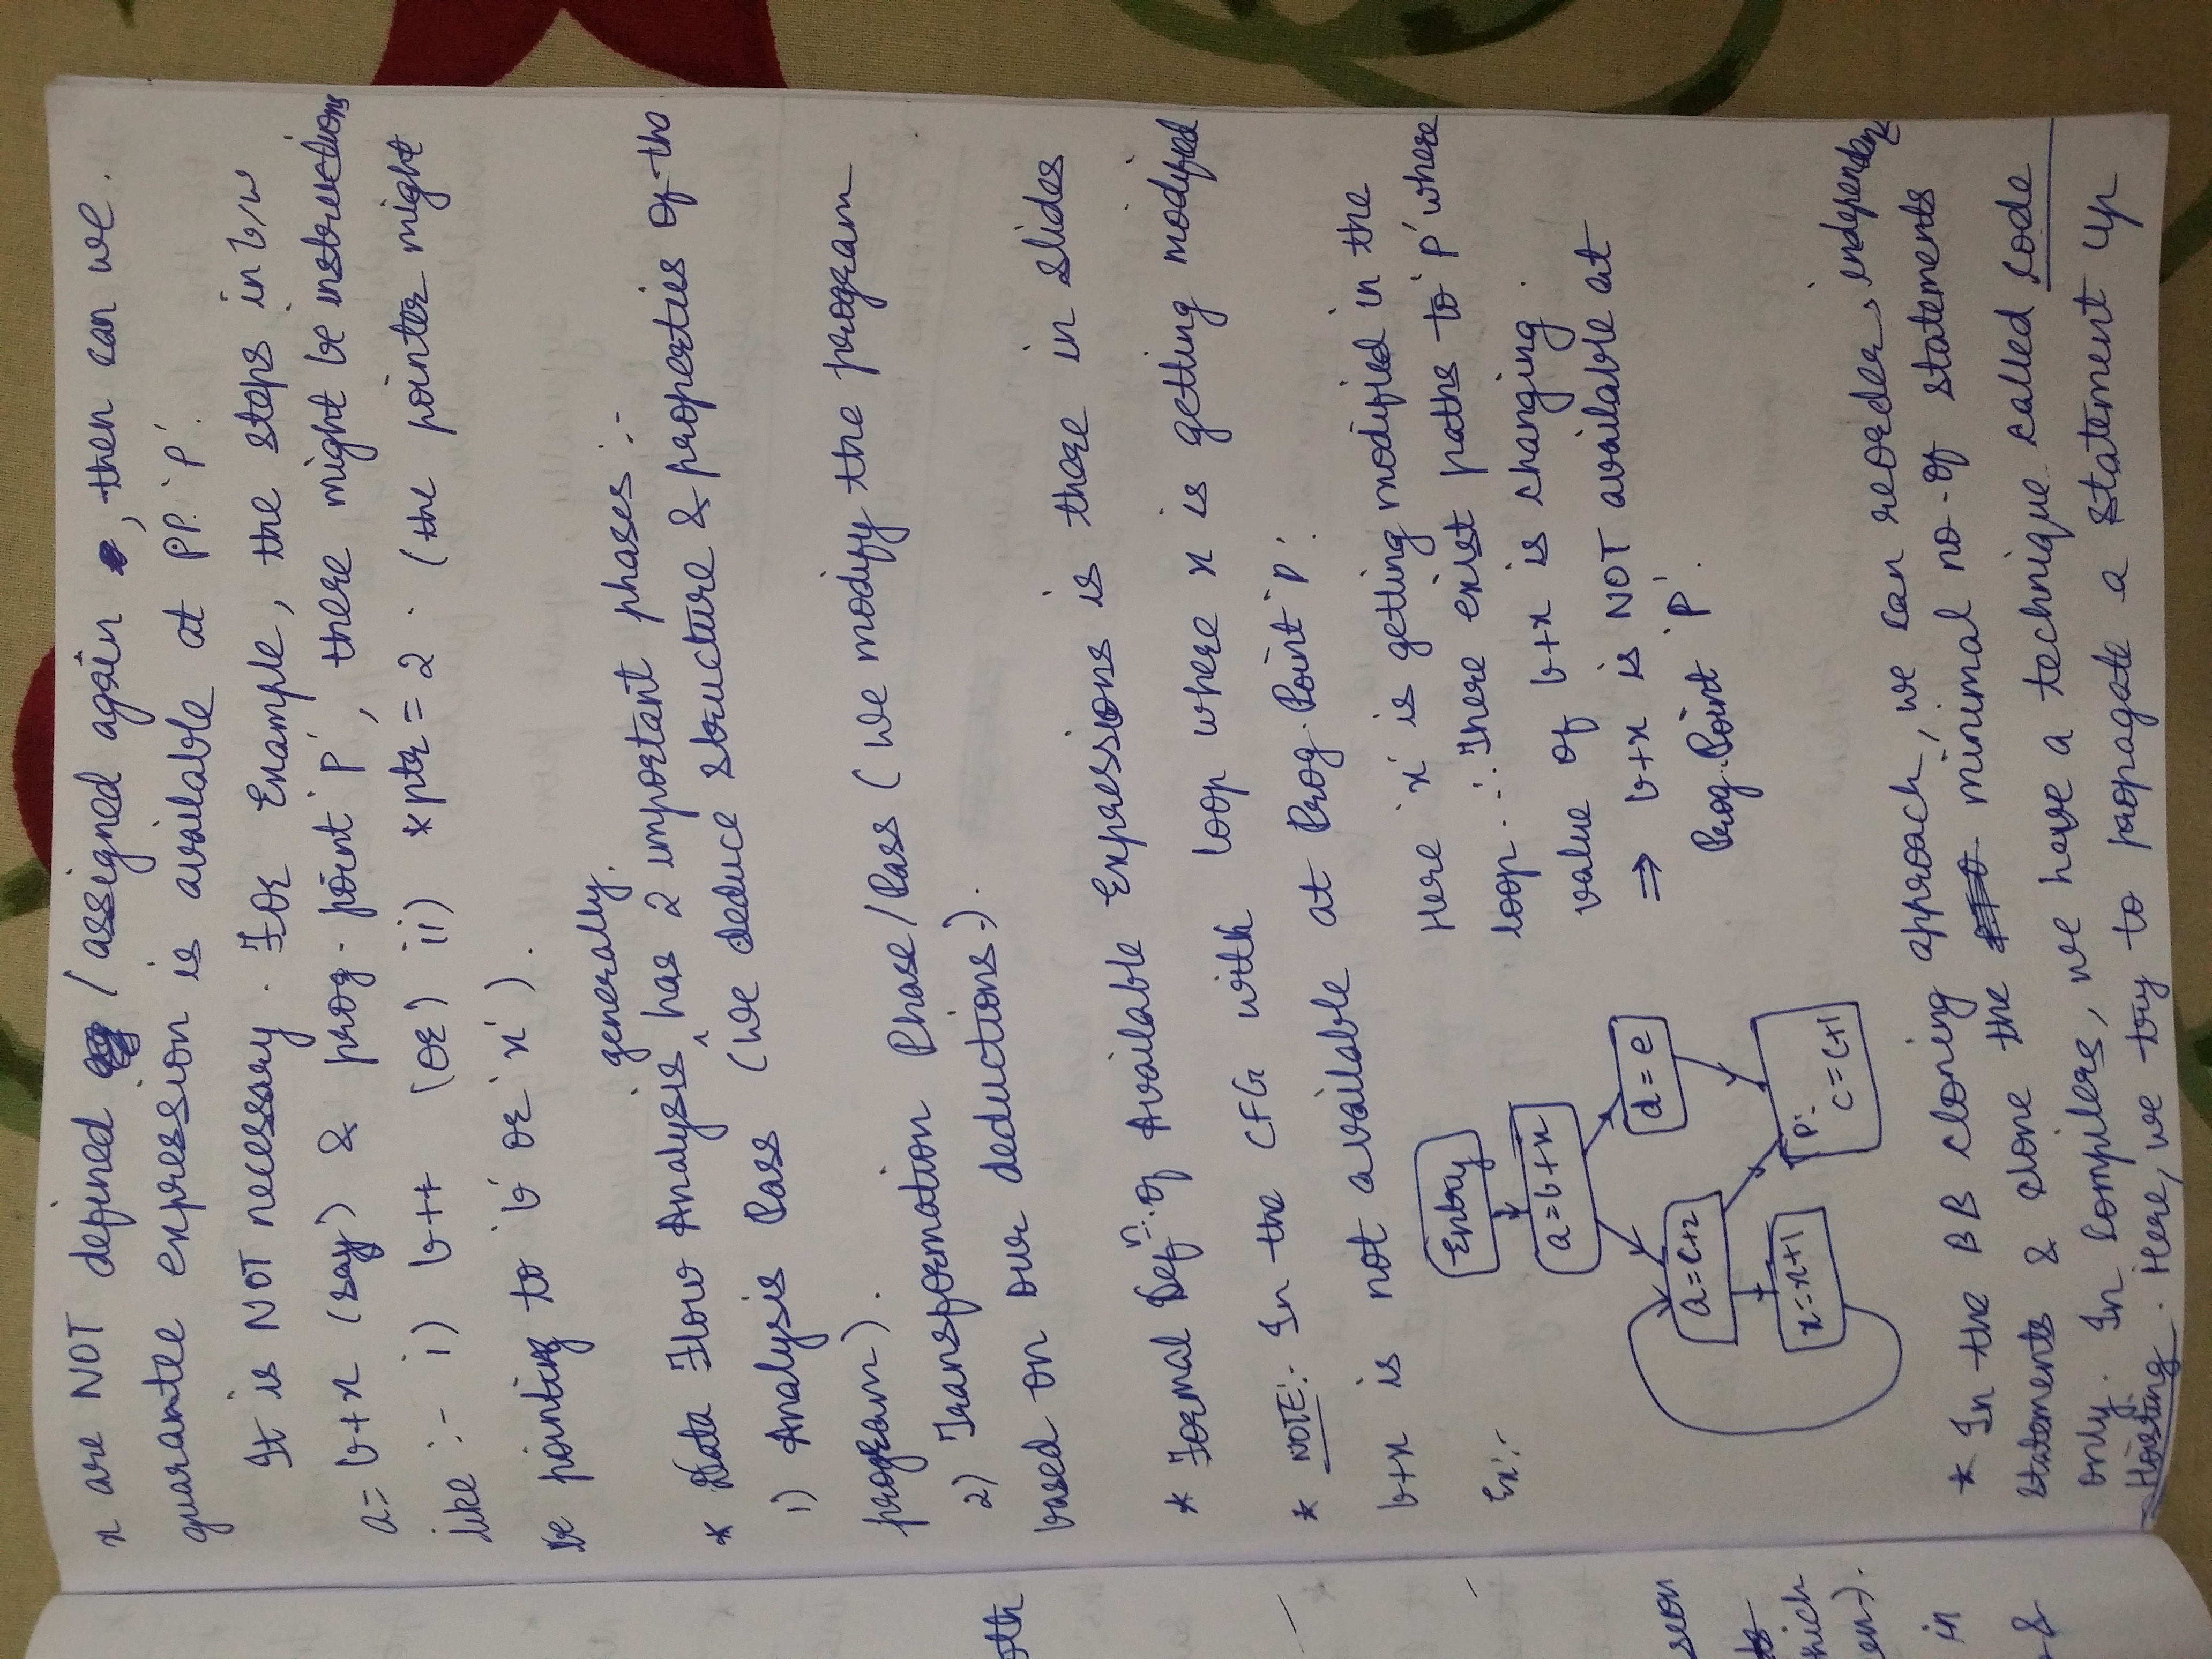 x are NOT defined / assigned again , then can we .
guarantee expression is available at PP. 'P'.
It is NOT necessary. For Example, the steps in b/w
a= b+x (say) & prog. point 'P', there might be instructions
like :- i) b++ (or) ii) *ptr = 2 . (the pointer might
be pointing to 'b' or 'x').
generally.
* Data Flow Analysis ^ has 2 important phases :-
1) Analysis Pass (We deduce structure & properties of the
program).
2) Transformation Phase/Pass (We modify the program
based on our deductions.).
* Formal Defn. of Available Expressions is there in slides
* NOTE:- In the CFG with loop where x is getting modified
b+x is not available at Prog. Point 'P'.
Ex:-
Entry
a=b+x
d=e
a=c+2
x=x+1
P:
c=c+1
Here 'x' is getting modified in the
loop. ∴ There exist paths to 'P' where
value of b+x is changing.
⇒ b+x is NOT available at
Prog. Point 'P'.
* In the BB cloning approach, we can reorder, independent
statements & clone the minimal no. of statements
only. In Compilers, we have a technique called Code
Hoisting. Here, we try to propagate a statement up
oth
hich
en).
in
&